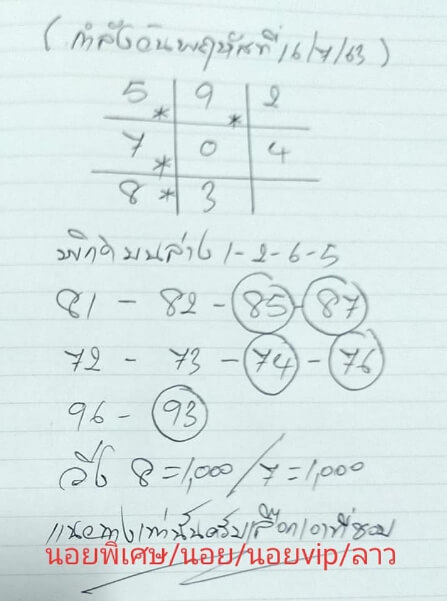 (กำลังวันพฤหัสที่ 16/7/63)
5 * 9 * 2
7 * 0 4
8 * 3
พิกัดบนล่าง 1-2-6-5
81 - 82 - 85 - 87
72 - 73 - 74 - 76
96 - 93
วิ่ง 8=1,000/7=1,000
แนวทางเท่านั้นครับเลือกเอาที่ชอบ
นอยพิเศษ/นอย/นอยvip/ลาว